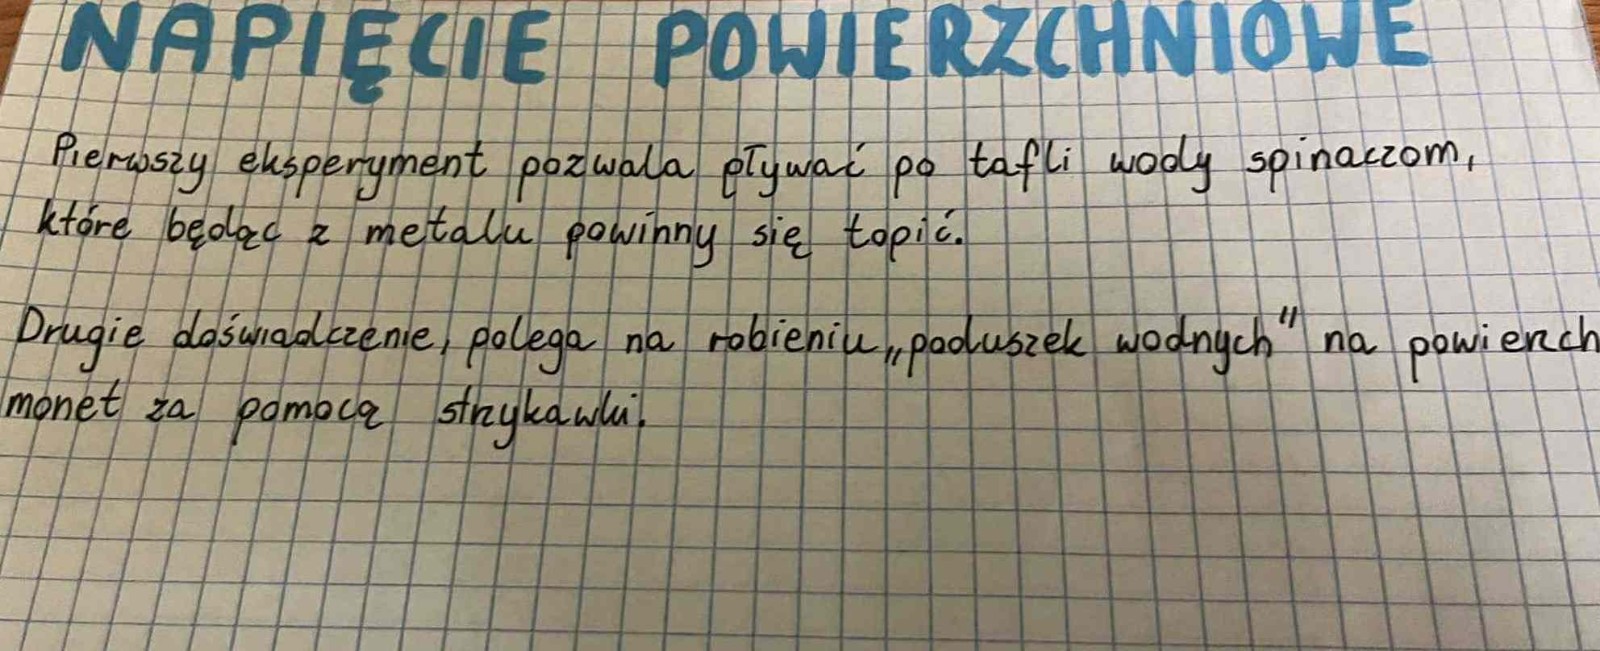 NAPIĘCIE POWIERZCHNIOWE
Pierwszy eksperyment pozwala pływać po tafli wody spinaczom,
które będąc z metalu powinny się topić.
Drugie doświadczenie, polega na robieniu „poduszek wodnych" na powierzch
monet za pomocą strzykawki.